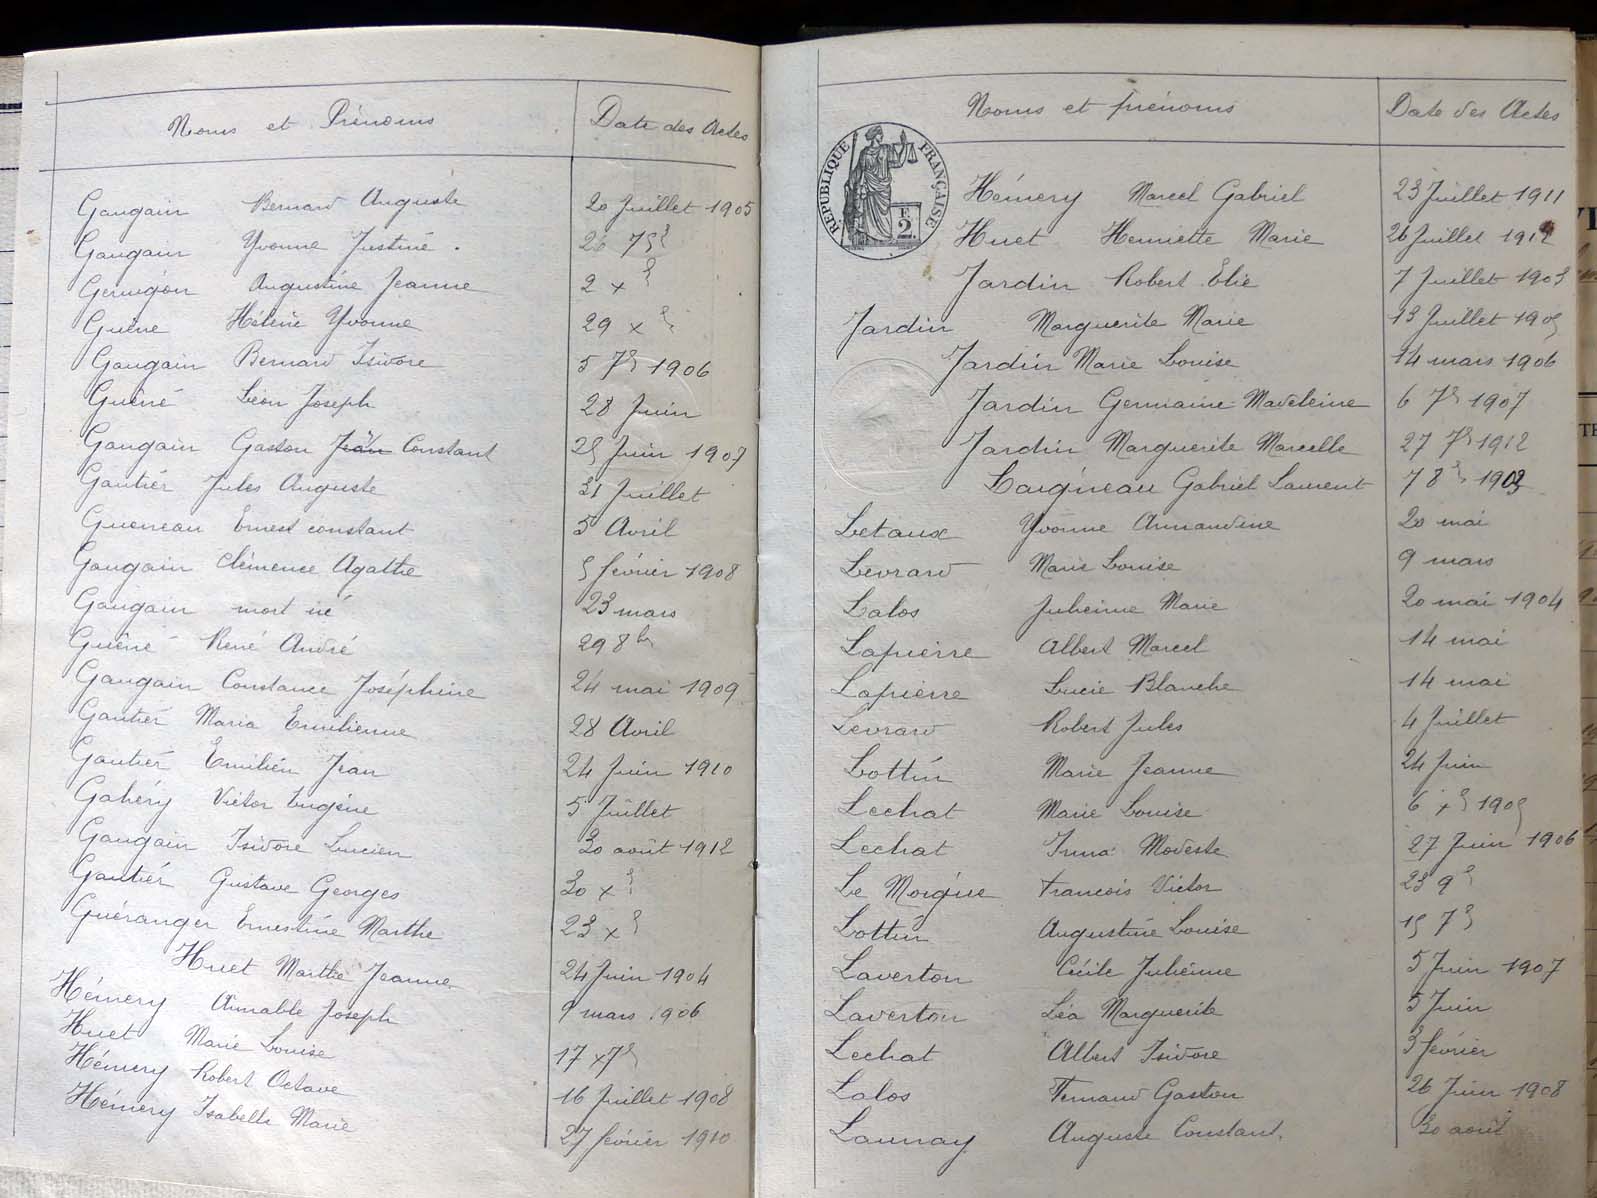 Noms et Prénoms Date des Actes
Gaugain Bernard Auguste 20 Juillet 1905
Gaugain Yvonne Justine. 26 7bre
Germigon Augustine Jeanne 2 xbre
Guéné Hélène Yvonne 29 xbre
Gaugain Bernard Isidore 5 7bre 1906
Guéné Léon Joseph 28 Juin
Gaugain Gaston Jean Constant 25 Juin 1907
Gautier Jules Auguste 31 Juillet
Gueneau Ernest constant 5 Avril
Gaugain Clémence Agathe 5 février 1908
Gaugain mort né 23 mars
Guéné René André 29 8bre
Gaugain Constance Joséphine 24 mai 1909
Gautier Maria Emilienne 28 Avril
Gautier Emilien Jean 24 Juin 1910
Gahéry Victor Eugène 5 Juillet
Gaugain Isidore Lucien 30 août 1912
Gautier Gustave Georges 30 xbre
Guéranger Ernestine Marthe 23 xbre
Huet Marthe Jeanne 24 Juin 1904
Hémery Aimable Joseph 9 mars 1906
Huet Marie Louise 17 7bre
Hémery Robert Octave 16 Juillet 1908
Hémery Isabelle Marie 27 février 1910
Noms et prénoms Date des Actes
RÉPUBLIQUE FRANÇAISE
2 F.
Hémery Marcel Gabriel 23 Juillet 1911
Huet Henriette Marie 26 Juillet 1912
Jardin Robert Elie 7 Juillet 1903
Jardin Marguerite Marie 13 Juillet 1905
Jardin Marie Louise 14 mars 1906
Jardin Germaine Madeleine 6 7bre 1907
Jardin Marguerite Marcelle 27 7bre 1912
Laigneau Gabriel Laurent 7 8bre 1903
Letaux Yvonne Armandine 20 mai
Levrard Marie Louise 9 mars
Lalos Julienne Marie 20 mai 1904
Lapierre Albert Marcel 14 mai
Lapierre Lucie Blanche 14 mai
Levrard Robert Jules 4 Juillet
Lottin Marie Jeanne 24 Juin
Lechat Marie Louise 6 xbre 1905
Lechat Irma Modeste 27 Juin 1906
Le Moigne Francois Victor 23 9bre
Lottin Augustine Louise 15 7bre
Laverton Cécile Julienne 5 Juin 1907
Laverton Léa Marguerite 5 Juin
Lechat Albert Isidore 3 février
Lalos Fernand Gaston 26 Juin 1908
Launay Auguste Constant. 30 août